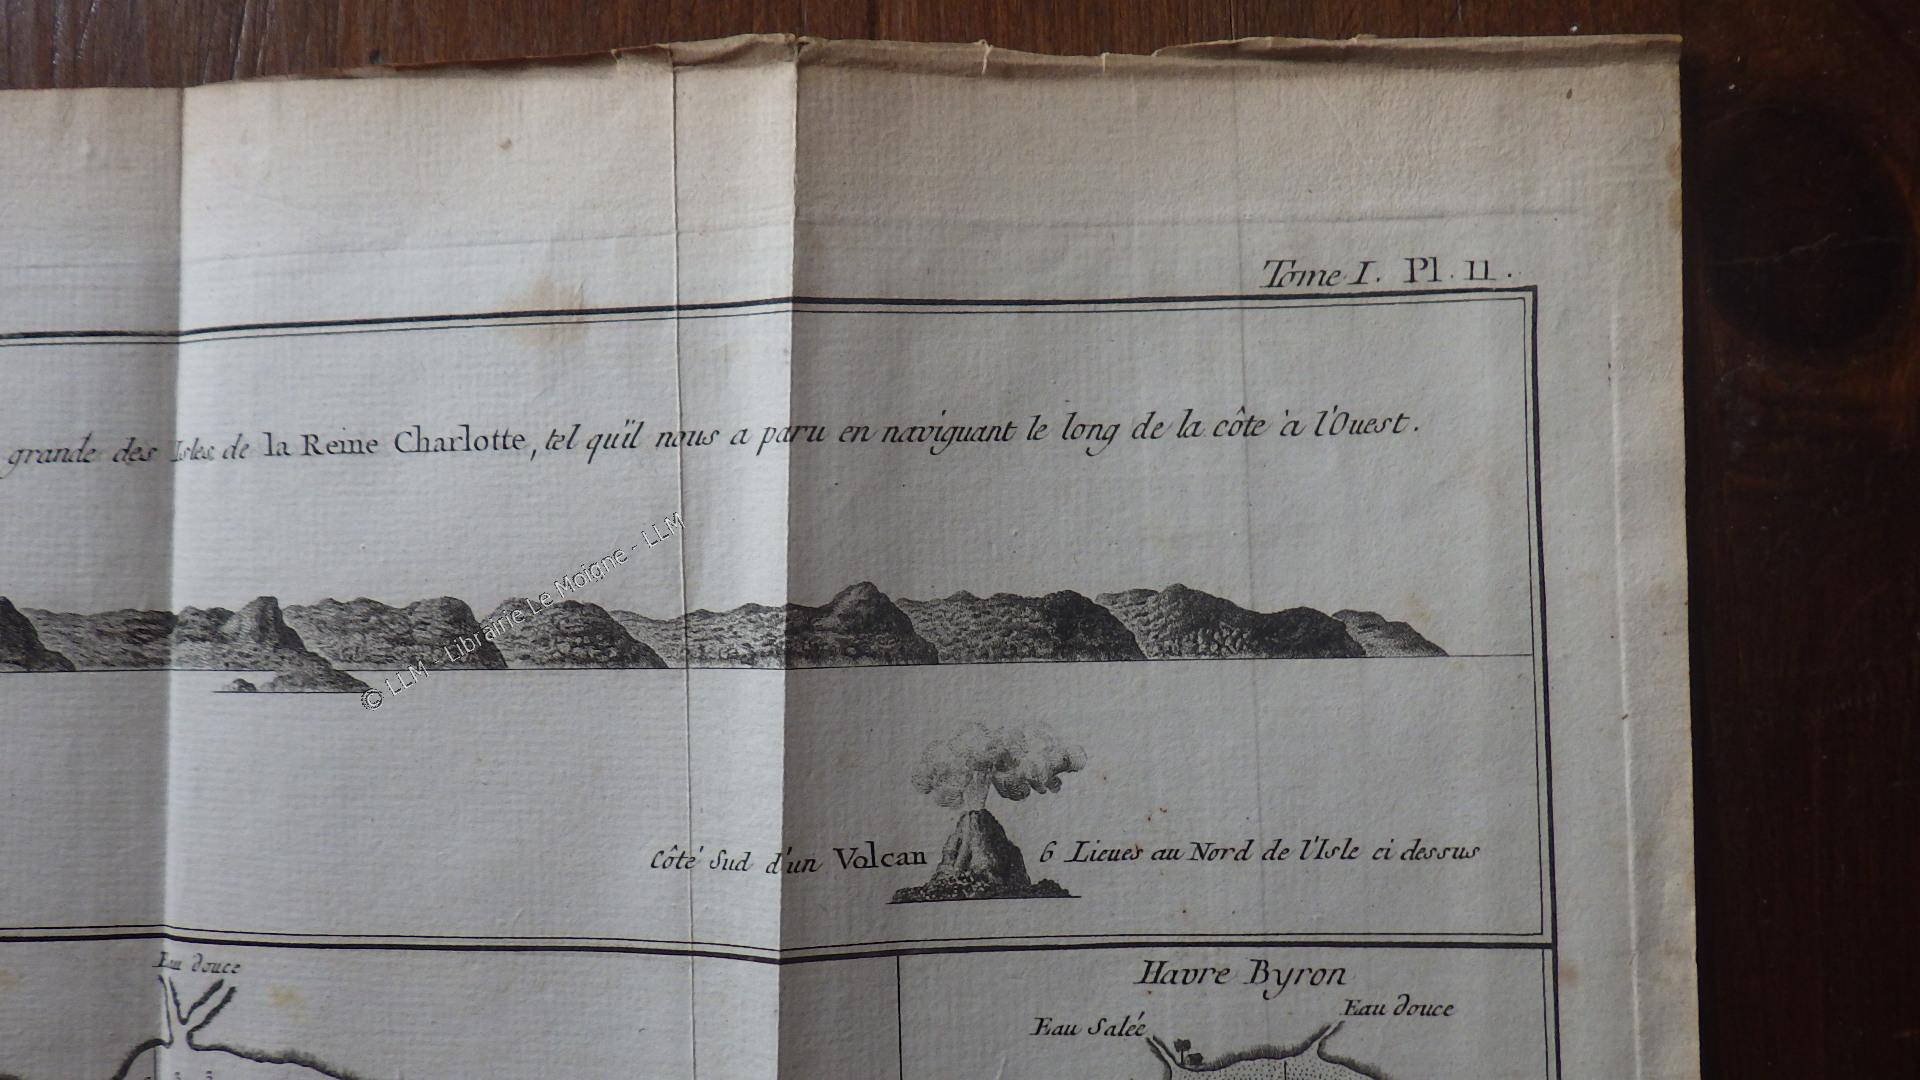 Tome I. Pl. 11.
grande des Isles de la Reine Charlotte, tel qu'il nous a paru en naviguant le long de la côte à l'Ouest.
© LLM - Librairie Le Moigne - LLM
Côté Sud d'un Volcan 6 Lieues au Nord de l'Isle ci dessus
Eau douce
Havre Byron
Eau douce
Eau Salée